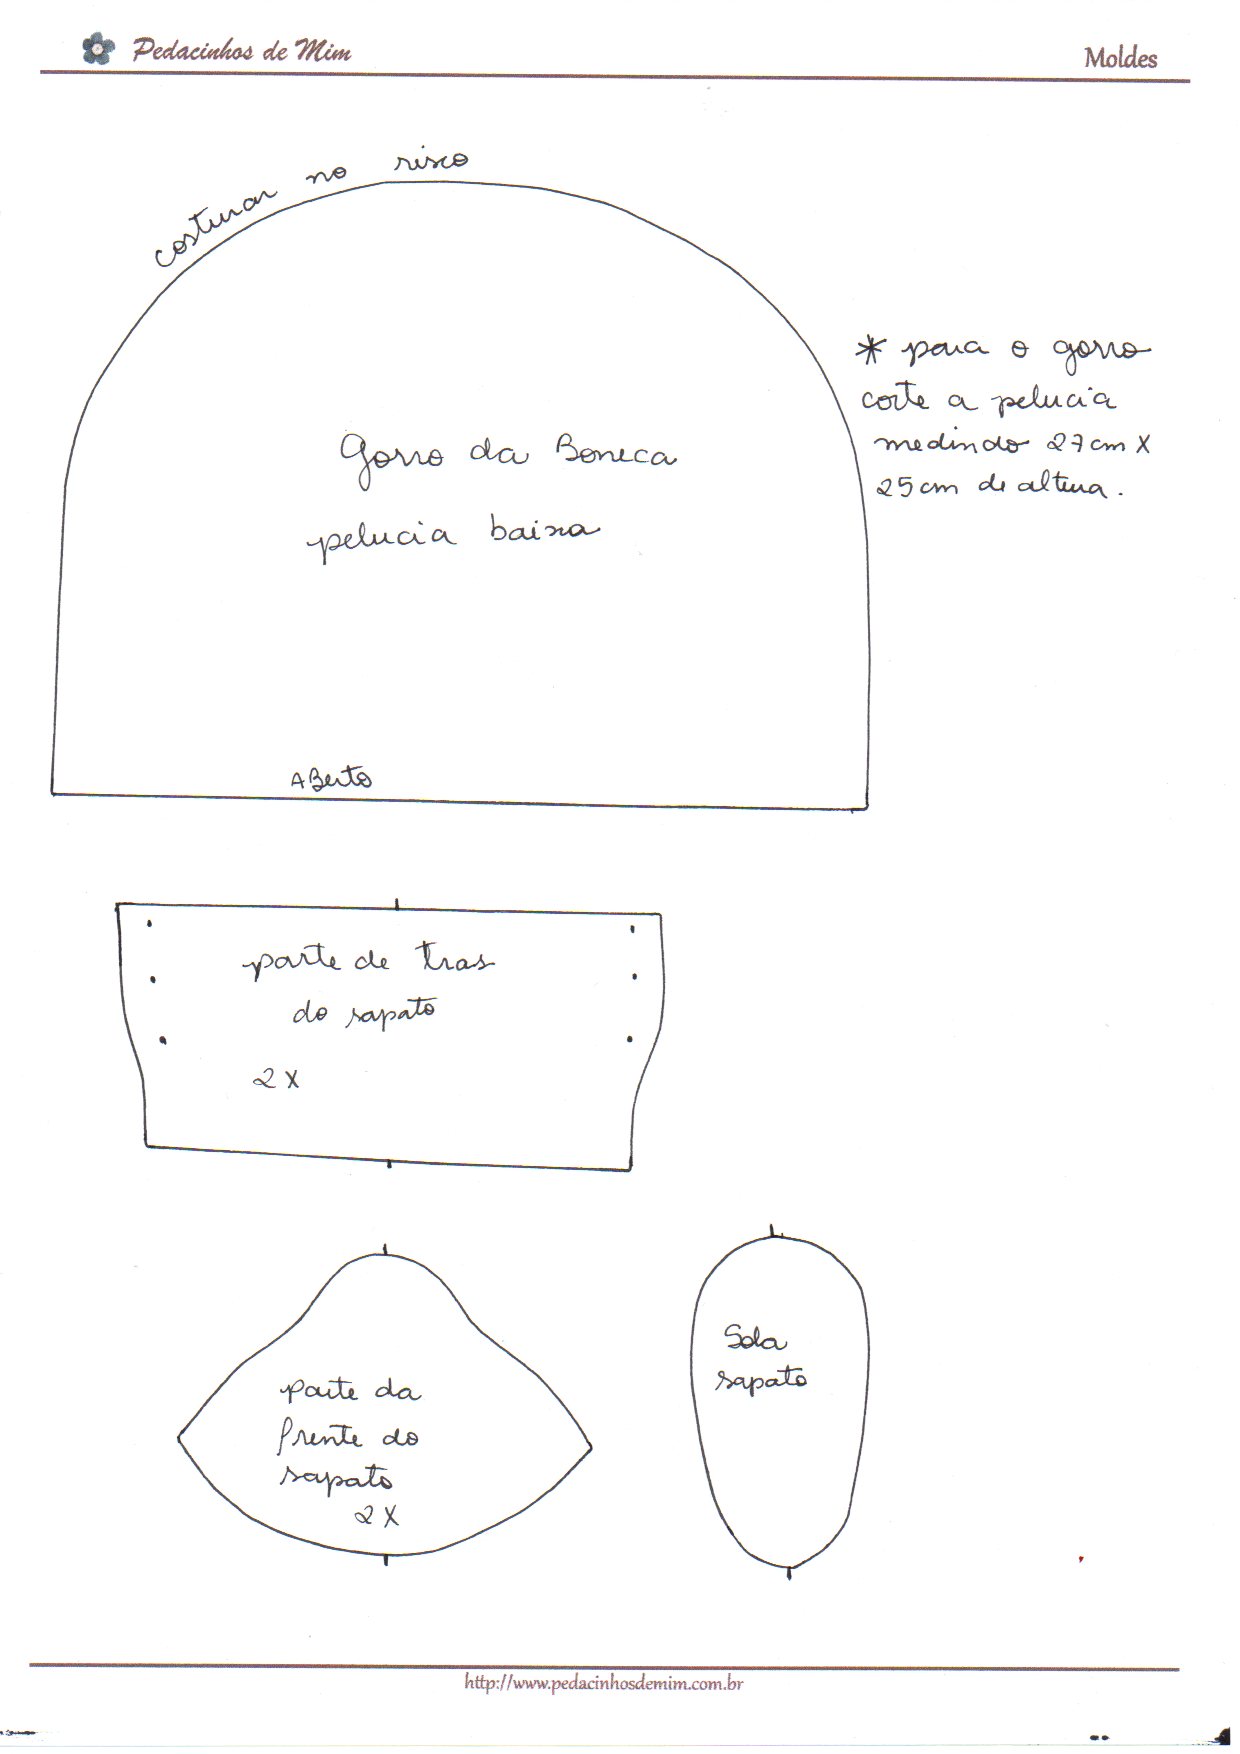 Pedacinhos de Mim
Moldes
costurar no risco
* para o gorro
corte a pelucia
medindo 27cm X
25cm de altura.
Gorro da Boneca
pelucia baixa
ABerto
parte de tras
do sapato
2X
parte da
frente do
sapato
2X
Sola
sapato
http://www.pedacinhosdemim.com.br